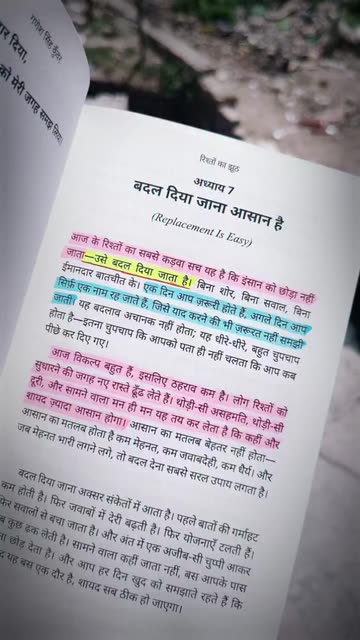 गणेश सिंह कुँवर
र दिया,
को मेरी जगह समझ लिया
रिश्तों का झूठ
अध्याय 7
बदल दिया जाना आसान है
(Replacement Is Easy)
आज के रिश्तों का सबसे कड़वा सच यह है कि इंसान को छोड़ा नहीं
जाता—उसे बदल दिया जाता है। बिना शोर, बिना सवाल, बिना
ईमानदार बातचीत के। एक दिन आप ज़रूरी होते हैं, अगले दिन आप
सिर्फ़ एक नाम रह जाते हैं, जिसे याद करने की भी ज़रूरत नहीं समझी
जाती। यह बदलाव अचानक नहीं होता; यह धीरे-धीरे, बहुत चुपचाप
होता है—इतना चुपचाप कि आपको पता ही नहीं चलता कि आप कब
पीछे कर दिए गए।
आज विकल्प बहुत हैं, इसलिए ठहराव कम है। लोग रिश्तों को
सुधारने की जगह नए रास्ते ढूँढ लेते हैं। थोड़ी-सी असहमति, थोड़ी-सी
दूरी, और सामने वाला मन ही मन यह तय कर लेता है कि कहीं और
शायद ज़्यादा आसान होगा। आसान का मतलब बेहतर नहीं होता—
आसान का मतलब होता है कम मेहनत, कम जवाबदेही, कम धैर्य। और
जब मेहनत भारी लगने लगे, तो बदल देना सबसे सरल उपाय लगता है।
बदल दिया जाना अक्सर संकेतों में आता है। पहले बातों की गर्माहट
कम होती है। फिर जवाबों में देरी बढ़ती है। फिर योजनाएँ टलती हैं।
फिर सवालों से बचा जाता है। और अंत में एक अजीब-सी चुप्पी आकर
ब कुछ ढक लेती है। सामने वाला कहीं जाता नहीं, बस आपके पास
ना छोड़ देता है। और आप हर दिन खुद को समझाते रहते हैं कि
द यह बस एक दौर है, शायद सब ठीक हो जाएगा।